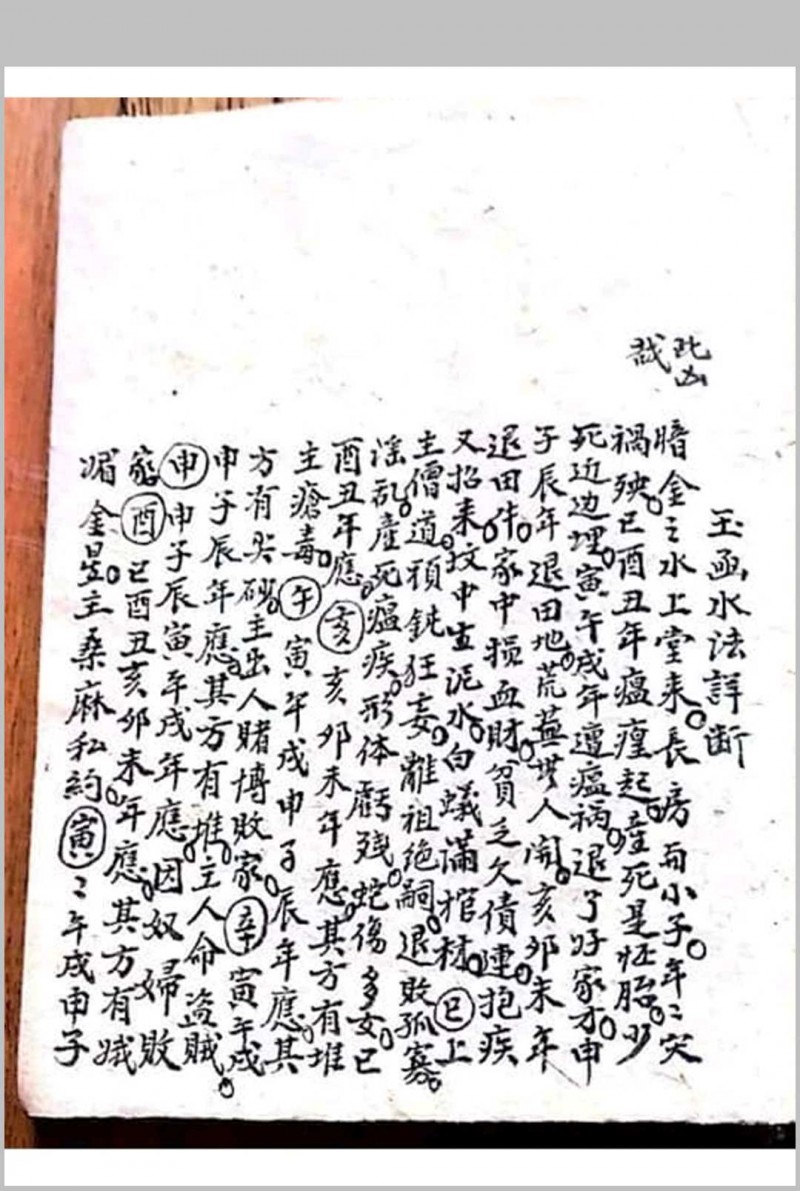 此凶
哉
玉函水法詳断
暗金之水上堂来。長房而小子。年〻灾
禍殃。巳酉丑年瘟㾮起。産死是妊胎。少
死近边埋。寅午戌年遭瘟禍。退了好家才。申
子辰年退田地。荒蕪塋人開。亥卯未年
退田牛。家中损血財。貧乏欠債連。抱疾
又招来。坟中生泥水。白蟻满棺材。巳上
主僧道。頑鈍狂妄。離祖绝嗣。退敗孤寡。
滛乱。産死瘟疾。形体虧残。蛇傷多女。巳
酉丑年應。亥亥卯未年應。其方有堆
主瘡毒。午寅午戌申子辰年應。其
方有哭砂。主出人賭博敗家。辛寅午戌
申子辰年應。其方有堆。主人命盗賊。
申申子辰寅午戌年應。因奴婦敗
家。酉巳酉丑亥卯未年應。其方有娥
媚金星。主桑麻私約。寅〻午戌申子